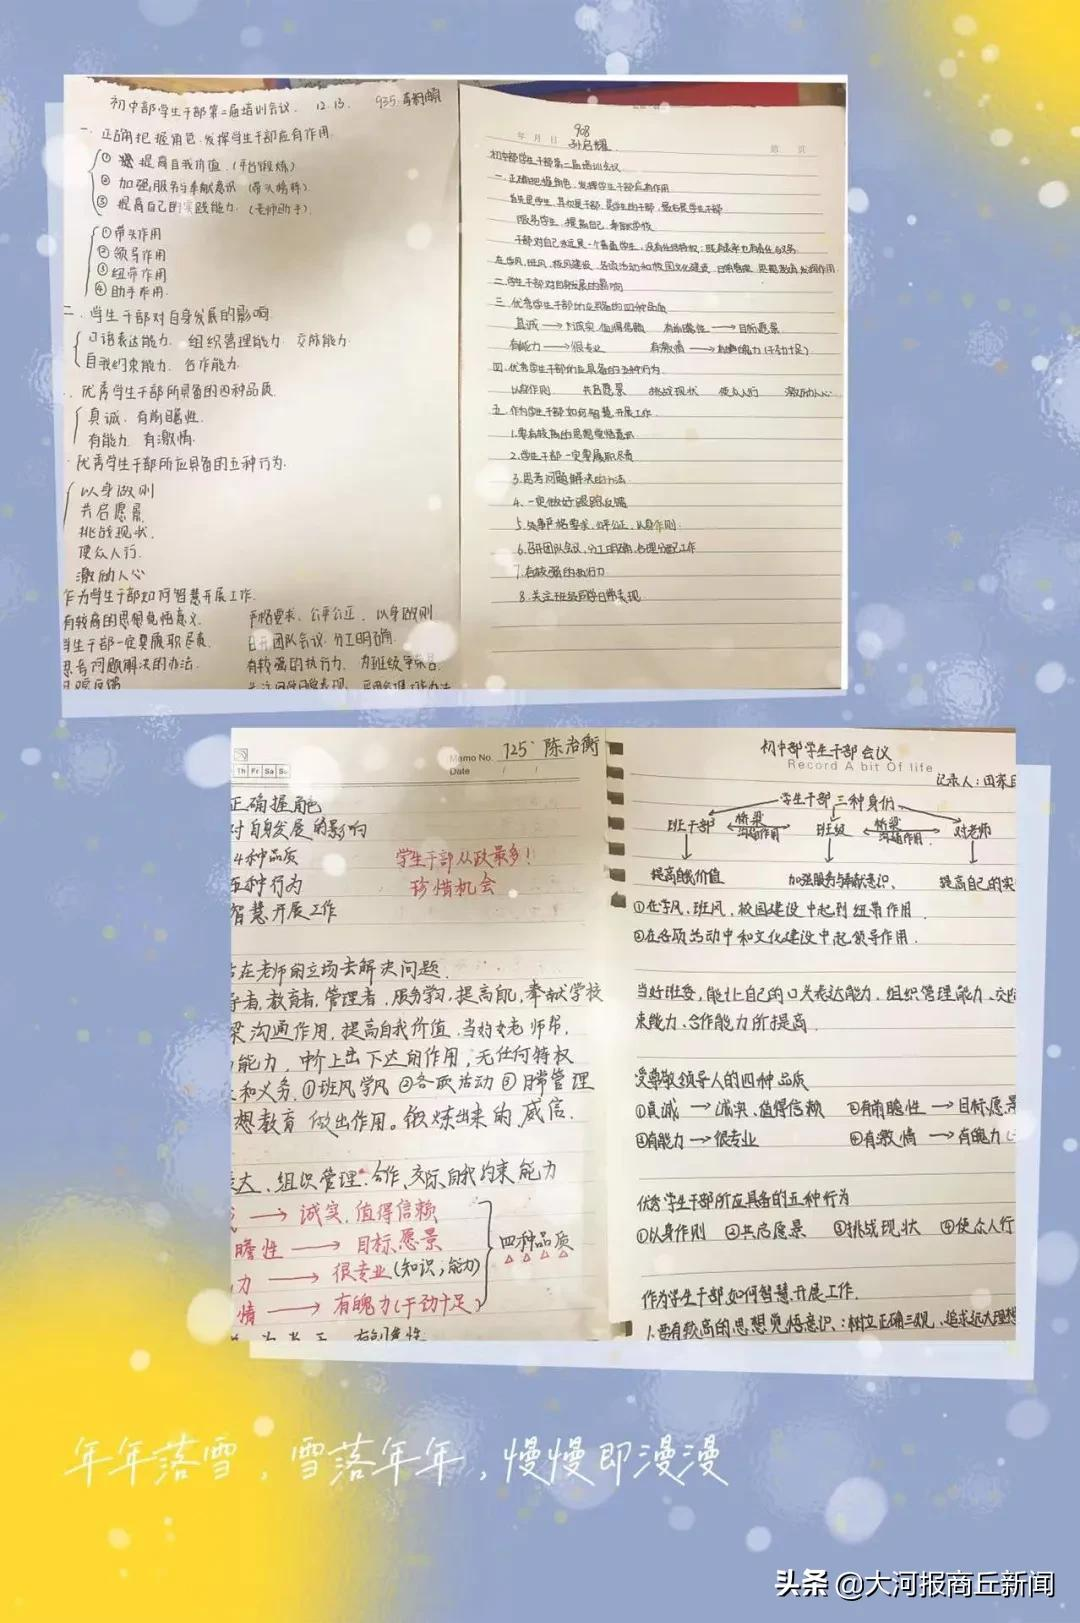 初中部学生干部第二届培训会议. 12.13. 935.
一. 正确把握角色.发挥学生干部应有作用.
① 提高自我价值.(平台锻炼)
② 加强服务与奉献意识 (带头榜样).
③ 提高自己的实践能力. (老师助手).
①带头作用
②领导作用
③纽带作用
④助手作用.
二. 学生干部对自身发展的影响
口语表达能力. 组织管理能力. 交际能力.
自我约束能力. 合作能力.
. 优秀学生干部所具备的四种品质.
真诚. 有前瞻性.
有能力. 有激情.
. 优秀学生干部所应具备的五种行为.
以身做则
共启愿景.
挑战现状.
使众人行.
激励人心
作为学生干部如何智慧开展工作.
有较高的思想觉悟意义. 严格要求、公平公正、以身做则.
学生干部一定要履职尽责. 召开团队会议.分工明确.
思考问题解决的办法. 有较强的执行力.
年 月 日 908
孙启耀.
初中部学生干部第二届培训会议
一.正确把握角色,发挥学生干部应有作用.
首先是学生,其次是干部,是学生的干部,最后是学生干部
服务学生,提高自己,奉献学校
二.学生干部对自身发展的影响
三.优秀学生干部所应具备的四种品质
真诚→诚实.值得信赖 有前瞻性→目标愿景
有能力→很专业 有激情→有魄力(干劲十足)
四.优秀学生干部所应具备的五种行为.
以身作则 共启愿景 挑战现状 使众人行 激励人心.
五.作为学生干部如何智慧开展工作.
1.要有较高的思想觉悟意识
2.学生干部一定要履职尽责
3.思考问题解决的办法.
4.一定做好跟踪反馈
5.处事严格要求,公平公正,以身作则.
6.召开团队会议,分工明确,合理分配工作
7.有较强的执行力
8.关注班级同学日常表现.
Th Fr Sa Su
Memo No. 725: 陈治衡
Date / /
正确握角色
对自身发展的影响
4种品质 学生干部从政最多!
五种行为 珍惜机会
智慧开展工作
站在老师的立场去解决问题.
导者,教育者,管理者,服务学习,提高自己,奉献学校
梁沟通作用,提高自我价值.当好老师帮,
能力,中介上出下达的作用,无任何特权
和义务.①班风学风 ②各项活动 ③日常管理
想教育 做出作用。锻炼出来的威信.
表达、组织管理.合作.交际.自我约束能力
→ 诚实.值得信赖
瞻性 → 目标愿景
力 → 很专业(知识,能力) 四种品质
情 → 有魄力(干劲十足)
初中部学生干部会议
Record A bit Of life
记录人:田家
学生干部三种身份
班干部 桥梁 沟通作用 班级 桥梁 沟通作用 对老师
提高自我价值 加强服务与奉献意识、 提高自己的实
①在学风、班风、校园建设中起到纽带作用.
②在各项活动中和文化建设中起领导作用.
当好班委,能让自己的口头表达能力、组织管理能力、交际
束能力、合作能力所提高.
受尊敬领导人的四种品质
①真诚→诚实、值得信赖 ②有前瞻性→目标愿景
③有能力→很专业 ④有激情→有魄力(
优秀学生干部所应具备的五种行为
①以身作则 ②共启愿景 ③挑战现状 ④使众人行
作为学生干部如何智慧开展工作.
1.要有较高的思想觉悟意识.:树立正确三观、追求远大理想
年年落雪,雪落年年,慢慢即漫漫
头条 @大河报商丘新闻